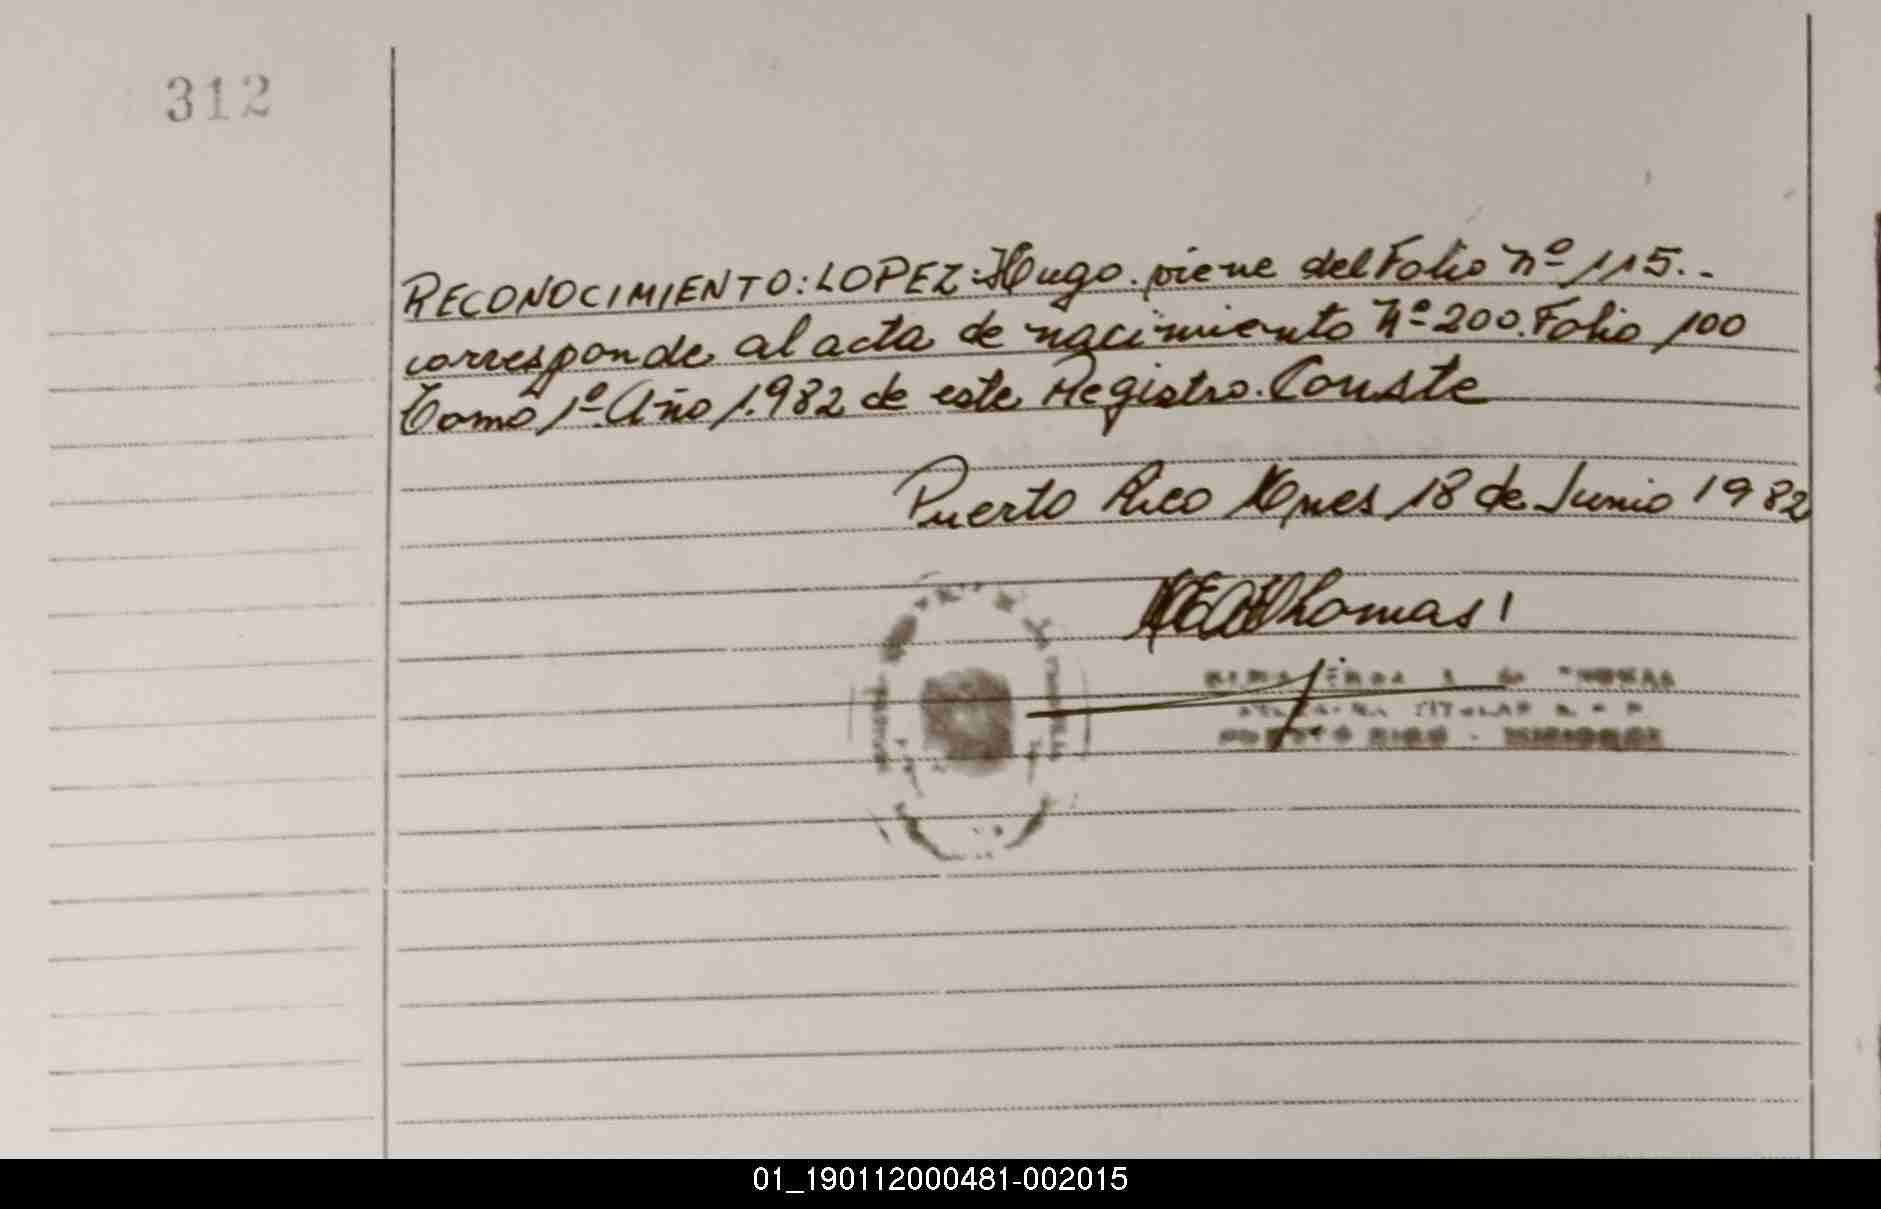 312
RECONOCIMIENTO: LOPEZ: Hugo. viene del Folio Nº 115..
corresponde al acta de nacimiento Nº 200. Folio 100
Tomo 1º Año 1.982 de este Registro. Conste
Puerto Rico Mnes 18 de Junio 1982
Thomas
TITULAR
PUERTO RICO - MISIONES
01_190112000481-002015